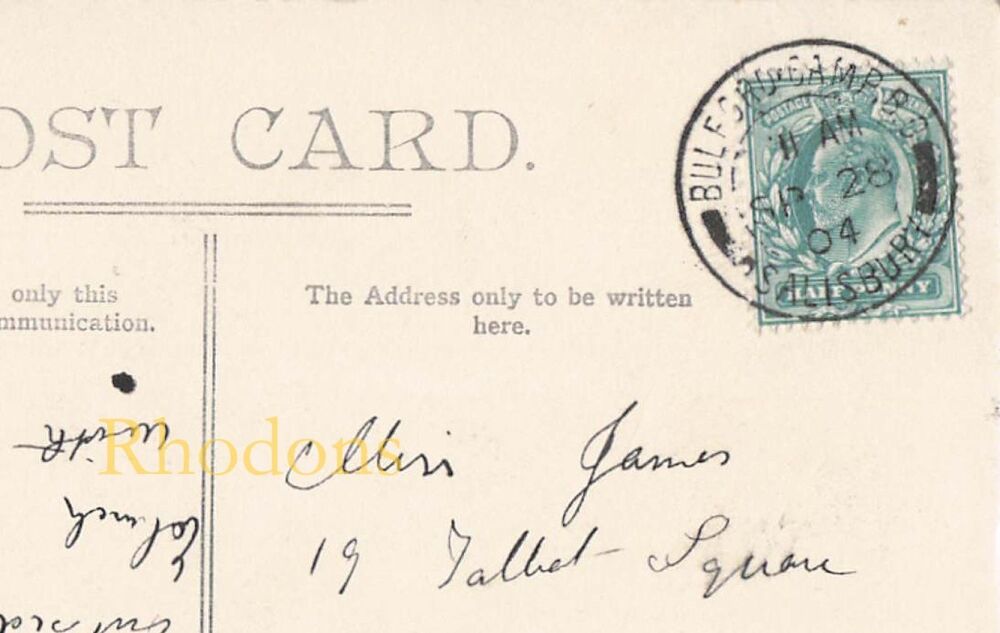 OST CARD.
BULFORD·CAMP R.O.
SALISBURY
11 AM
SP 28
04
POSTAGE
HALFPENNY
only this
mmunication.
The Address only to be written
here.
Rhodons
Miss James
19 Talbot Square
with